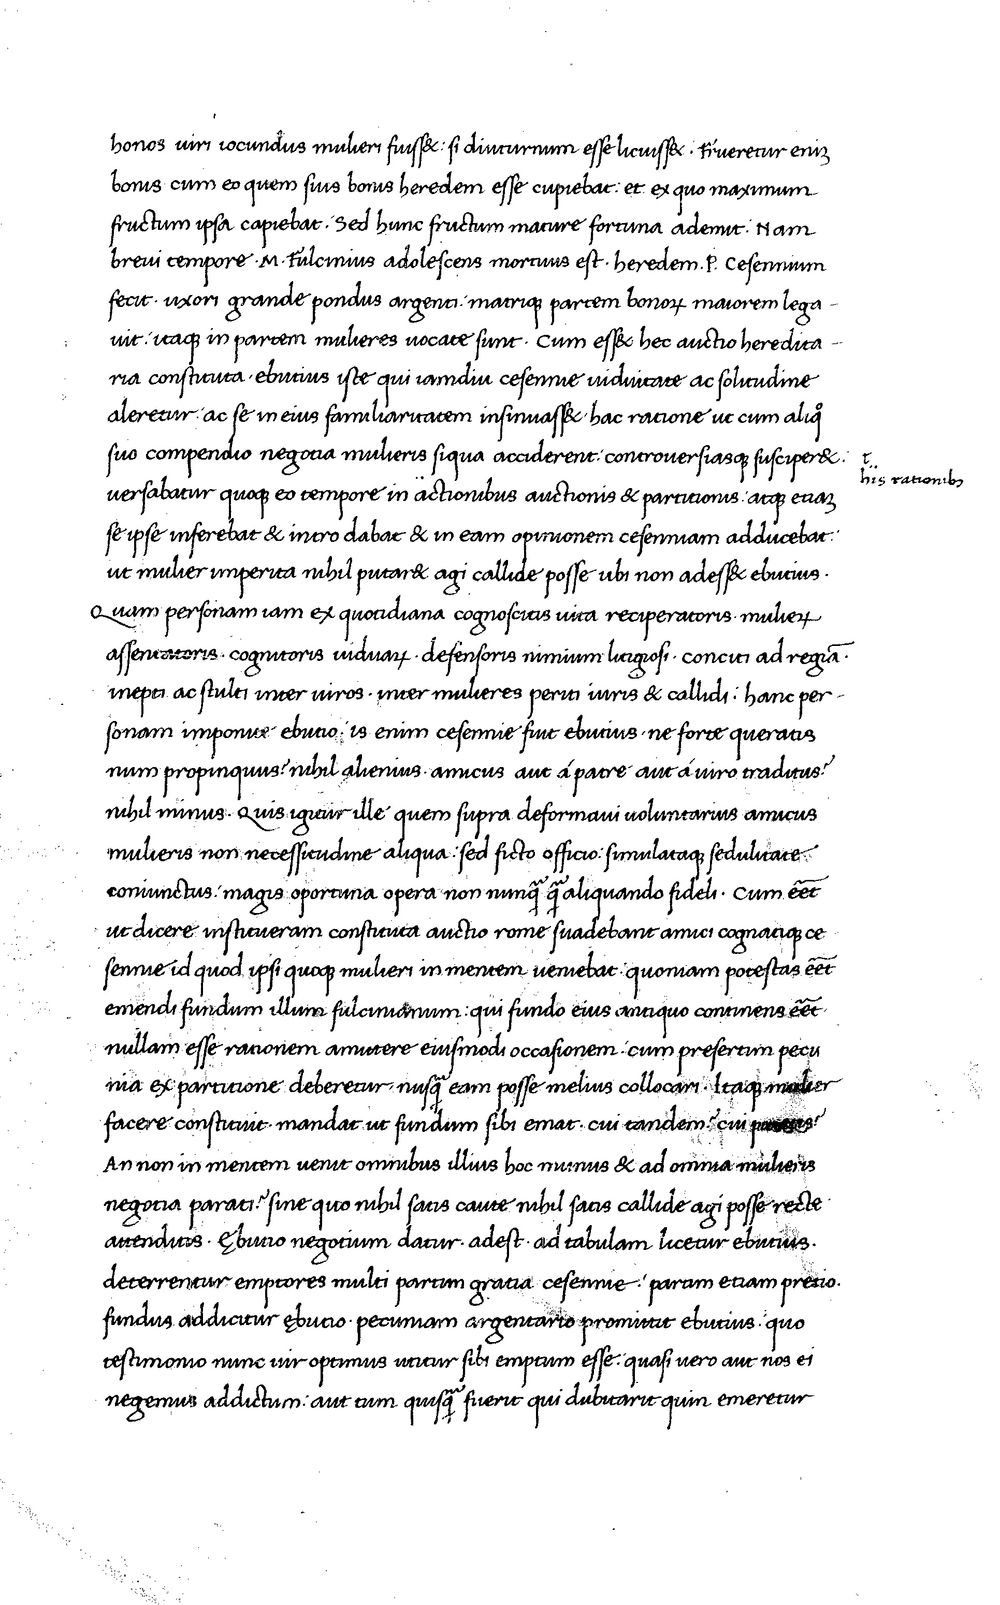 honos uiri iocundus mulieri fuiss&: si diuturnum esse licuiss&. Frueretur eniʒ
bonis cum eo quem suis bonis heredem esse cupiebat: et ex quo maximum
fructum ipsa capiebat. Sed hunc fructum mature fortuna ademit. Nam
breui tempore .M. Fulcinius adolescens mortuus est. heredem .P. Cesennium
fecit. uxori grande pondus argenti: matriqꝫ partem bonoꝝ maiorem lega-
uit: itaqꝫ in partem mulieres uocate sunt. Cum ess& hec auctio heredita-
ria constituta. ebutius iste qui iamdiu cesennie uiduitate ac solitudine
aleretur: ac se in eius familiaritatem insinuass&. hac ratione ut cum aliqͦ
suo compendio negotia mulieris siqua acciderent: controuersiasqꝫ suscíper&:
ł his rationibꝫ
uersabatur quoqꝫ eo tempore in actionibus auctionis & partitionis: atqꝫ etiaʒ
se ipse inferebat & intro dabat & in eam opinionem cesenniam adducebat:
ut mulier imperita nihil putar& agi callide posse ubi non adess& ebutius.
Quam personam iam ex quotidiana cognoscitis uita reciperatoris. mulieꝝ
assentatoris. cognitoris uiduaꝝ. defensoris nimium litigiosi. conciti ad regiā.
inepti ac stulti inter uiros. inter mulieres periti iuris & callidi: hanc per-
sonam imponite ebutio: is enim cesennie fuit ebutius. ne forte queratis
num propinquus? nihil alienius. amicus aut á patre aut á uiro traditus?
nihil minus. Quis igitur ille quem supra deformaui uoluntarius amicus
mulieris non necessitudine aliqua: sed ficto officio: simulataqꝫ sedulitate
coniunctus: magis oportuna opera non nunqᷓ qᷓ aliquando fideli. Cum eēt
ut dicere institueram constituta auctio rome suadebant amici cognatiqꝫ ce
sennie id quod ipsi quoqꝫ mulieri in mentem ueniebat. quoniam potestas eēt
emendi fundum illum fulcinianum: qui fundo eius antiquo continens eēt.
nullam esse rationem amittere eiusmodi occasionem: cum presertim pecu
nia ex partitione deberetur. nusqᷓ eam posse melius collocari. Itaqꝫ mulier
facere constituit. mandat ut fundum sibi emat. cui tandem? cui putatis?
An non in mentem uenit omnibus illius hoc munus & ad omnia mulieris
negotia parati? sine quo nihil satis caute nihil satis callide agi posse recte
attenditis. Ębutio negotium datur. adest. ad tabulam licetur ebutius.
deterrentur emptores multi partim gratia cesennie: partim etiam pretio.
fundus addicitur ębutio. pecuniam argentario promittit ebutius: quo
testimonio nunc uir optimus utitur sibi emptum esse: quasi uero aut nos ei
negemus addictum: aut tum quisqᷓ fuerit qui dubitarit quin emeretur